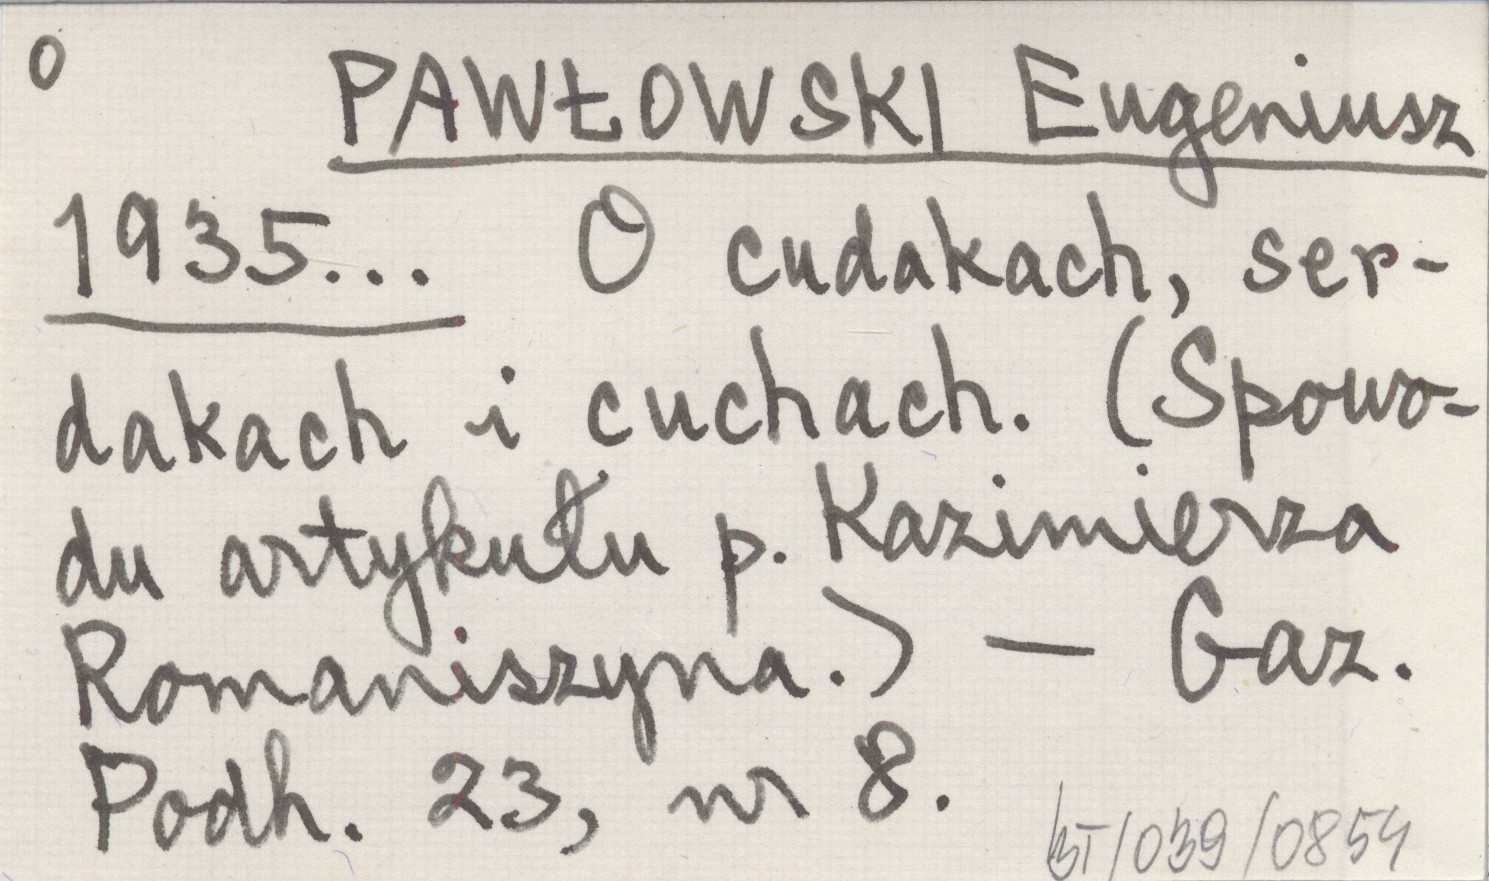 O PAWŁOWSKI Eugeniusz
1935... O cudakach, ser-
dakach i cuchach. (Spowo-
du artykułu p. Kazimierza
Romaniszyna.) — Gaz.
Podh. 23, nr 8.
BT/039/0854